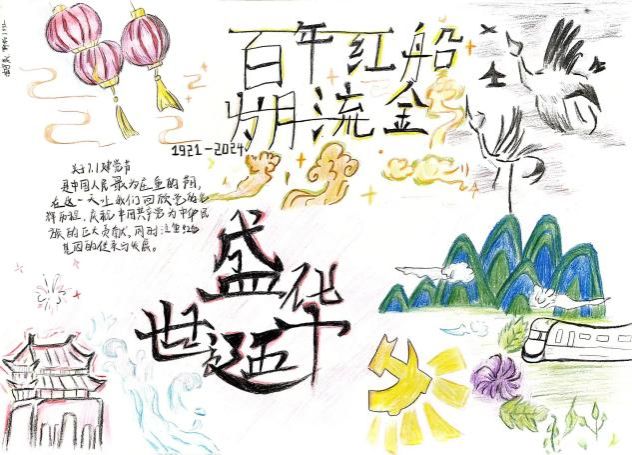 百年红船
岁月流金
1921-2024
关于7.1建党节
是中国人民最为庄重的节日,
在这一天让我们回顾党的光
辉历程,庆祝中国共产党为中华民
族的巨大贡献,同时注重红色
基因的传承与发展。
盛世华诞